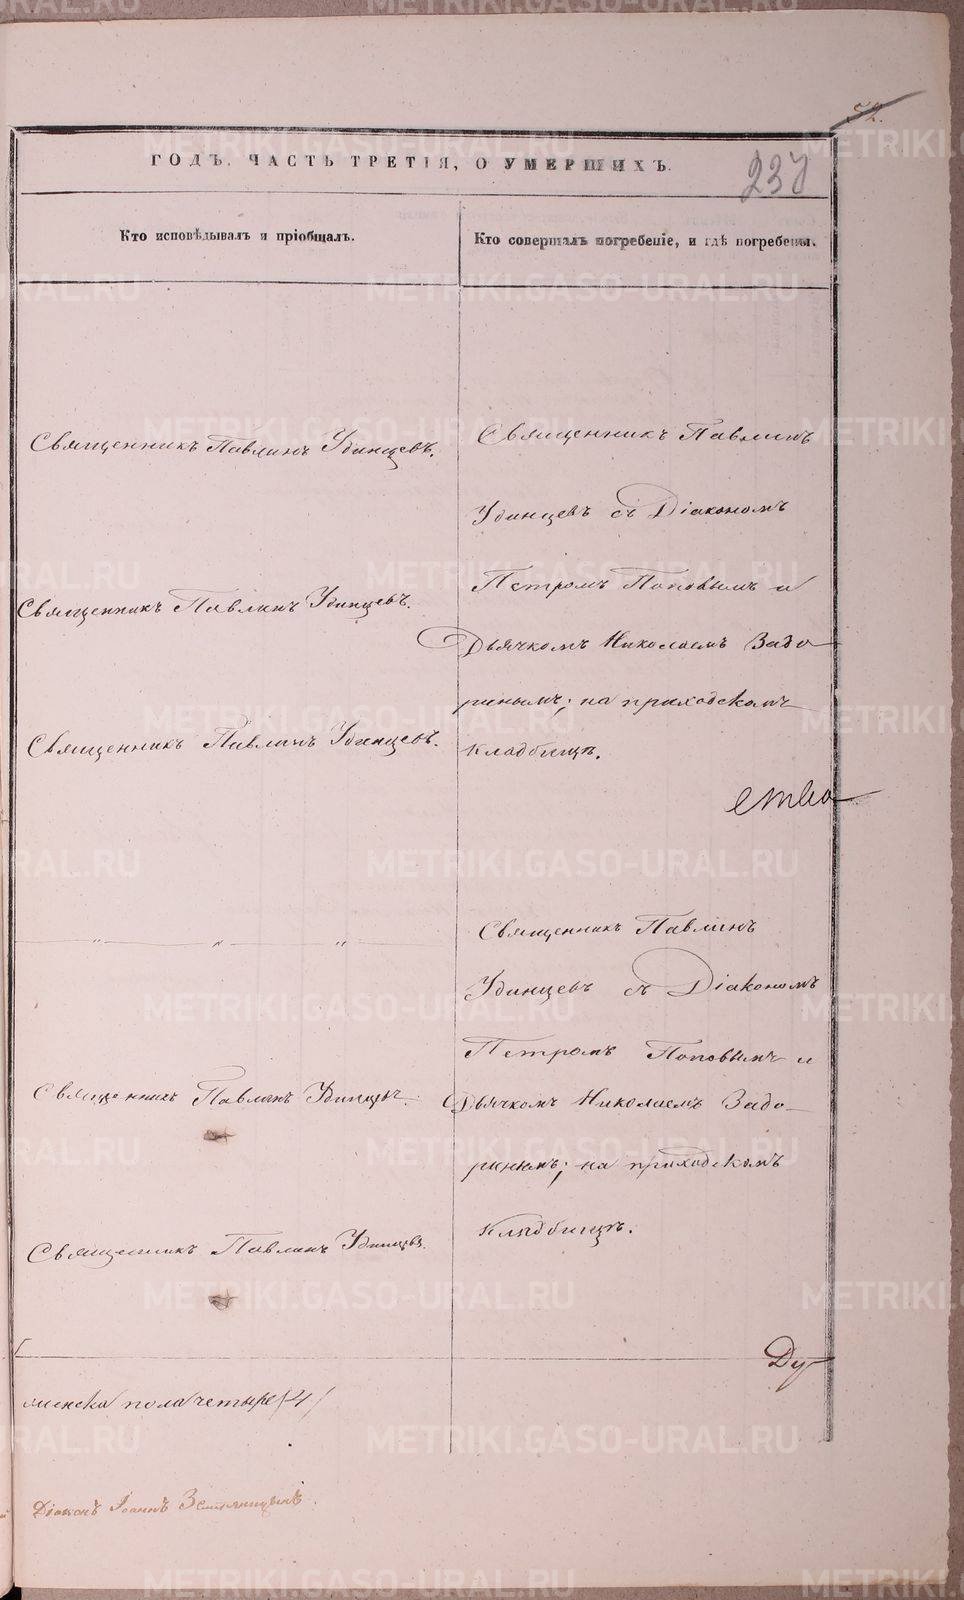 52.
ГОДЪ. ЧАСТЬ ТРЕТІЯ, О УМЕРШИХЪ.
237
Кто исповѣдывалъ и пріобщалъ.
Кто совершалъ погребеніе, и гдѣ погребены.
Священникъ Павлинъ Удинцевъ.
Священникъ Павлинъ Удинцевъ.
Священникъ Павлинъ Удинцевъ.
Священникъ Павлинъ Удинцевъ.
Священникъ Павлинъ Удинцевъ.
Священникъ Павлинъ
Удинцевъ съ Діакономъ
Петромъ Поповымъ и
Дьячкомъ Николаемъ Задо
ринымъ; на приходскомъ
кладбищѣ.
ства
Священникъ Павлинъ
Удинцевъ съ Діакономъ
Петромъ Поповымъ и
Дьячкомъ Николаемъ Задо
ринымъ; на приходскомъ
кладбищѣ.
Ду
женска пола четыре /4/
Діаконъ Іоаннъ
METRIKI.GASO-URAL.RU